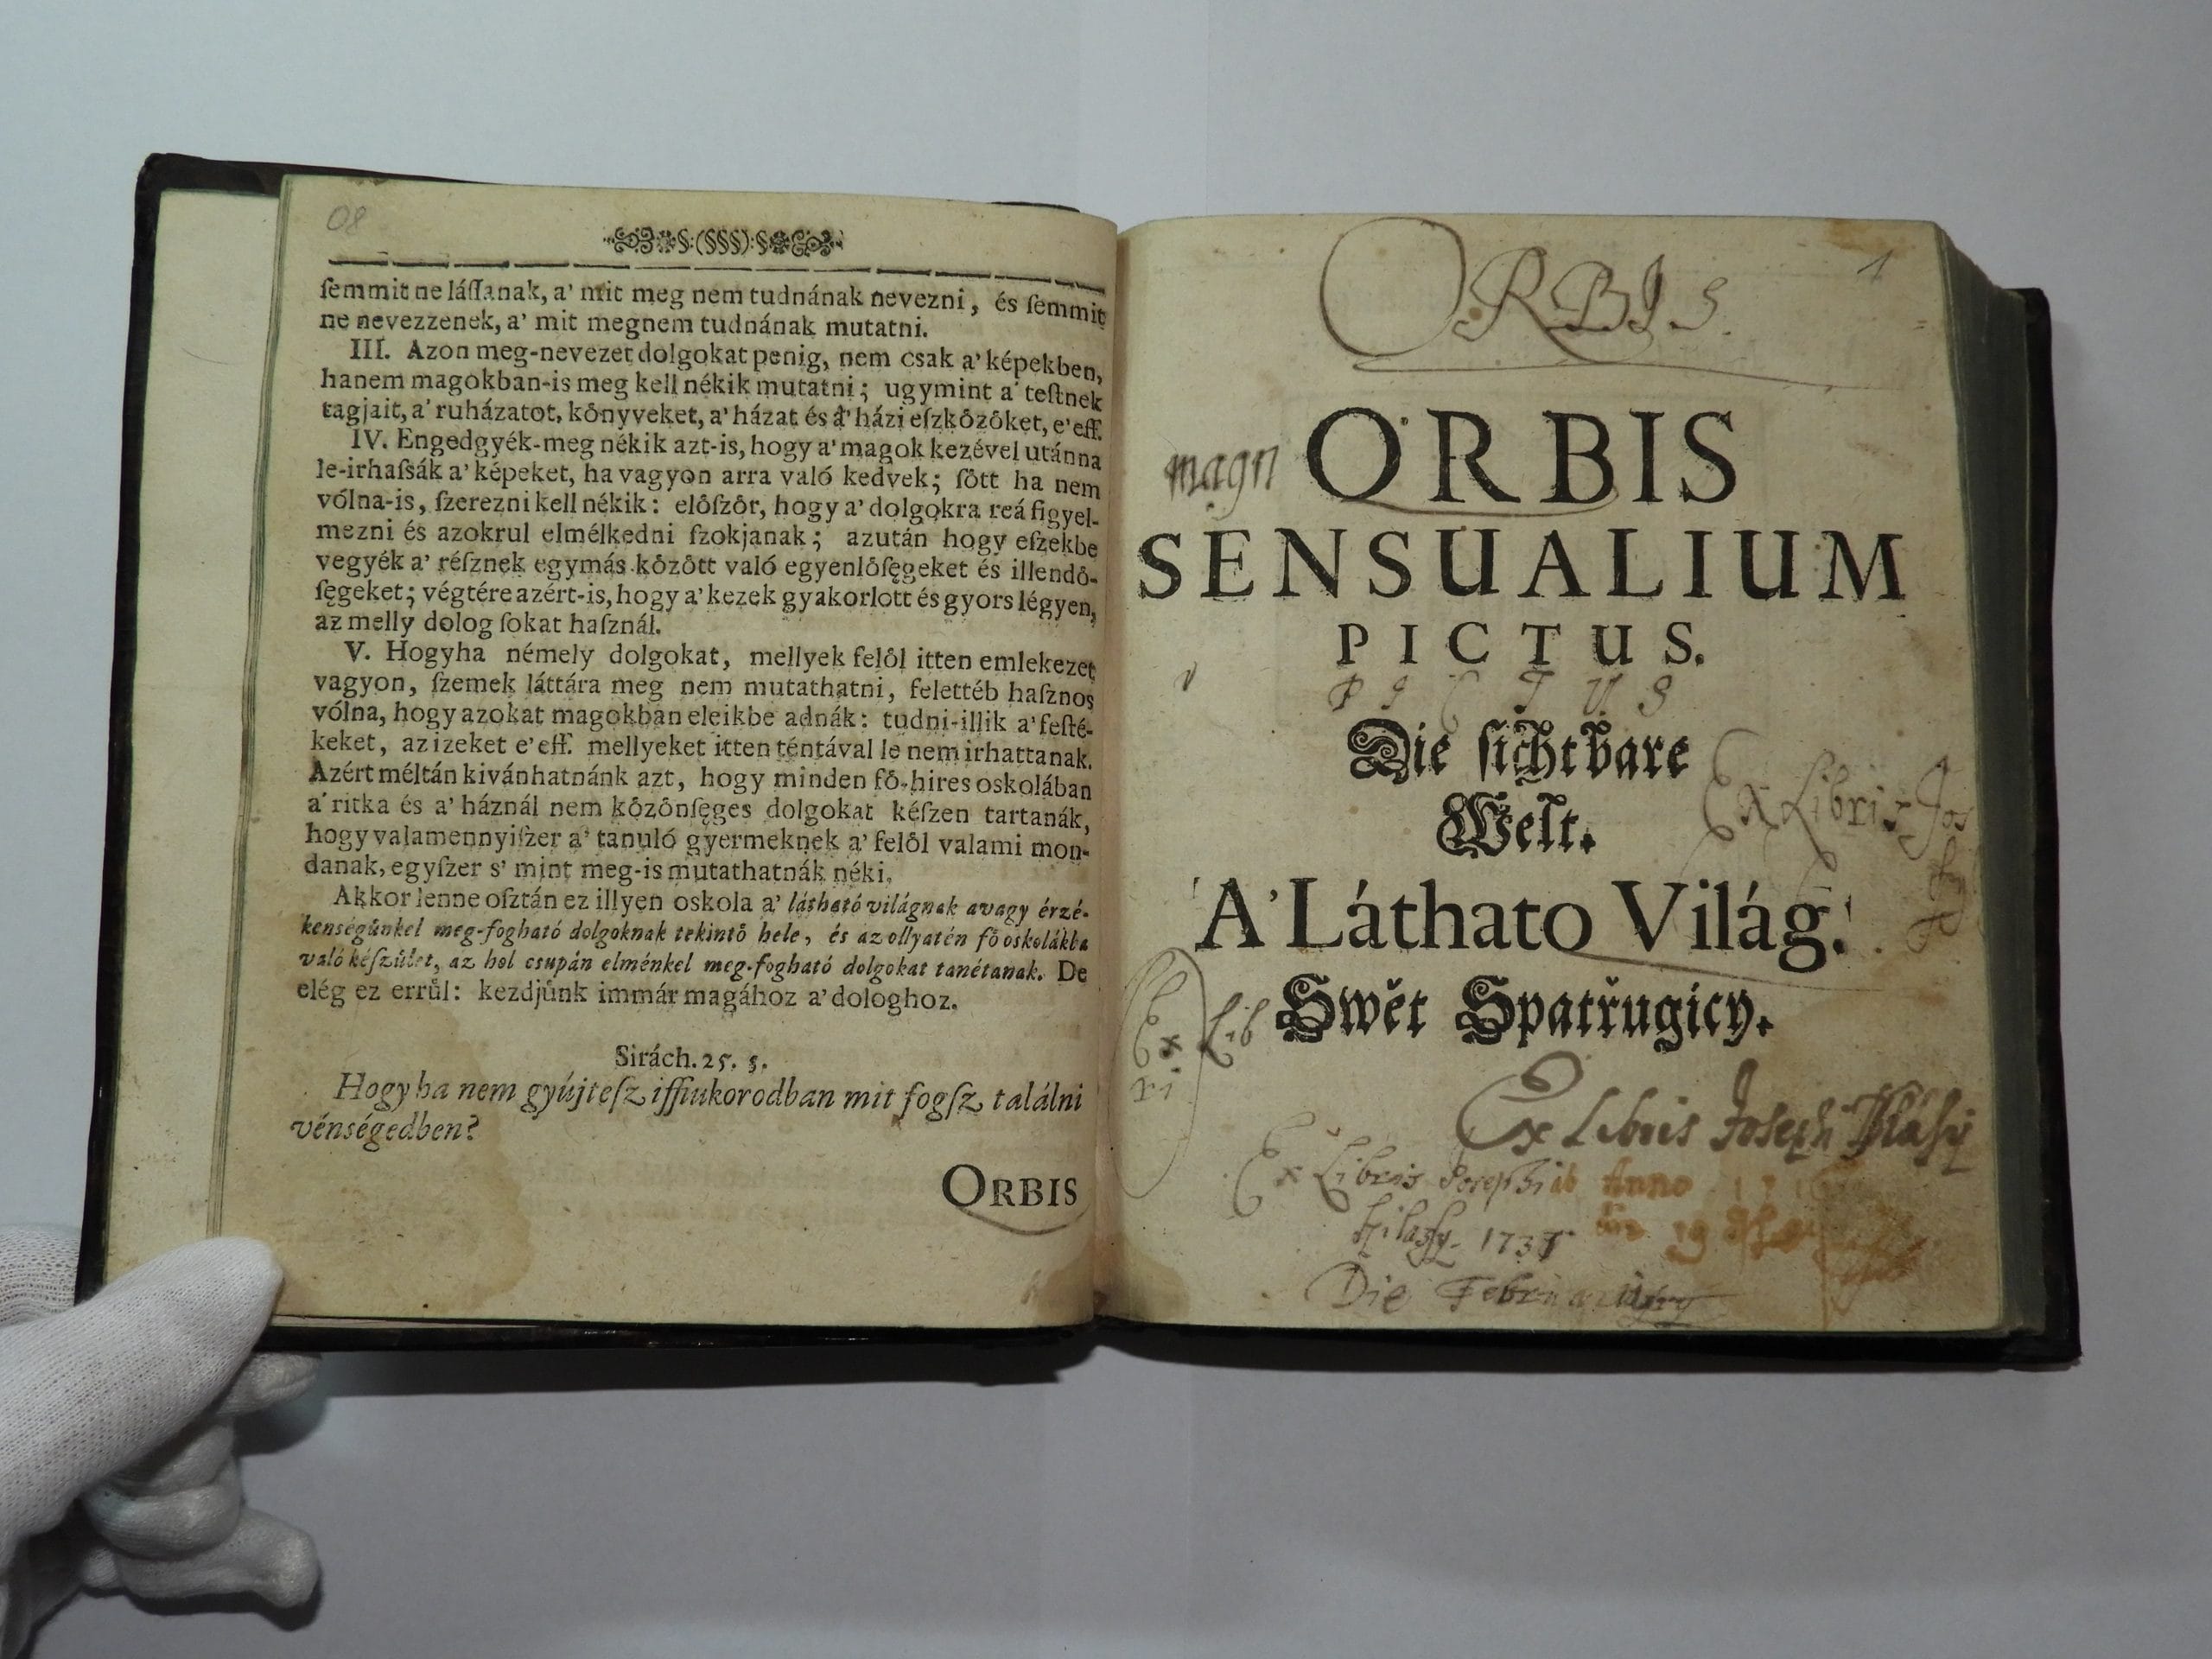 08
§:(§§§):§
ſemmit ne láſſanak, a' mit meg nem tudnának nevezni, és ſemmit
ne nevezzenek, a' mit megnem tudnának mutatni.
III. Azon meg-nevezet dolgokat penig, nem csak a' képekben,
hanem magokban-is meg kell nékik mutatni; ugymint a' teſtnek
tagjait, a' ruházatot, kȯnyveket, a' házat és a' házi eſzkȯzȯket, e' eff.
IV. Engedgyék-meg nékik azt-is, hogy a' magok kezével utánna
le-irhaſsák a' képeket, ha vagyon arra való kedvek; ſȯtt ha nem
vólna-is, ſzerezni kell nékik: elȯſzȯr, hogy a' dolgokra reá figyel-
mezni és azokrul elmélkedni ſzokjanak; azután hogy eſzekbe
vegyék a' réſznek egymás kȯzȯtt való egyenlȯſęgeket és illendȯ-
ſęgeket; végtére azért-is, hogy a' kezek gyakorlott és gyors légyen,
az melly dolog ſokat haſznál.
V. Hogyha némely dolgokat, mellyek felȯl itten emlekezet
vagyon, ſzemek láttára meg nem mutathatni, felettéb haſznos
vólna, hogy azokat magokban eleikbe adnák: tudni-illik a' feſté-
keket, az izeket e' eff. mellyeket itten téntával le nem irhattanak.
Azért méltán kivánhatnánk azt, hogy minden fȯ-hires oskolában
a' ritka és a' háznál nem kȯzȯnſęges dolgokat kéſzen tartanák,
hogy valamennyiſzer a' tanuló gyermeknek a' felȯl valami mon-
danak, egyſzer s' mint meg-is mutathatnák néki.
Akkor lenne oſztán ez illyen oskola a' látható világnak avagy érzé-
kenségu̇nkel meg-fogható dolgoknak tekintȯ hele, és az ollyatén fȯ oskolákba
való kéſzu̇let, az hol csupán elménkel meg-fogható dolgokat tanétanak. De
elég ez erru̇l: kezdju̇nk immár magához a' dologhoz.
Sirách. 25. 5.
Hogy ha nem gyújteſz iffiukorodban mit fogſz találni
vénségedben?
ORBIS
1
ORBIS.
magn
ORBIS
SENSUALIUM
PICTUS.
PICTUS
Die ſichtbare
Welt.
Ex Libris Jos
A' Láthato Világ.
Ex Lib
ri
Swět Spatřugicy.
Ex Libris Joseph
Ex Libris Josephi Anno
1735
19
Die Februarii